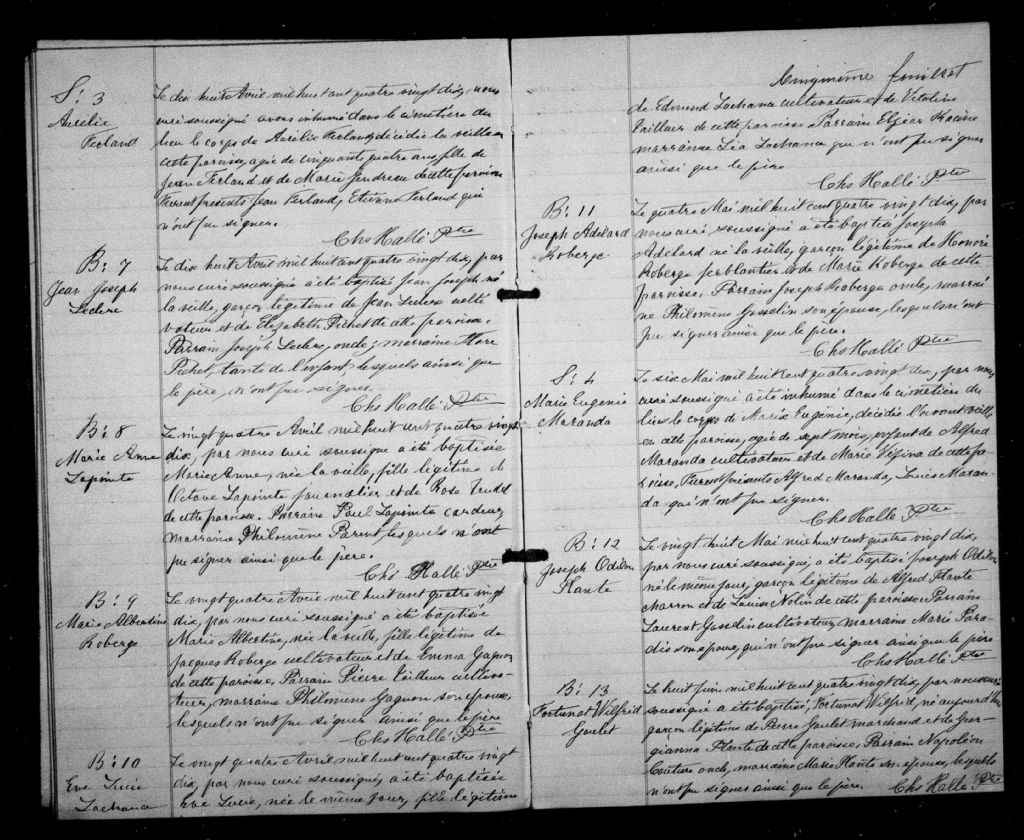 S: 3
Aurélie
Ferland
Le dix huit Avril mil huit cent quatre vingt dix, nous
curé soussigné avons inhumé dans le cimetière du
lieu le corps de Aurélie Ferland, décédée la veille en
cette paroisse, agée de cinquante quatre ans, fille de
Jean Ferland et de Marie Gendreau de cette paroisse
Furent présents Jean Ferland, Etienne Ferland qui
n'ont pu signer.
Chs Hallé Ptre
B: 7
Jean Joseph
Leclerc
Le dix huit Avril mil huit cent quatre vingt dix, par
nous curé soussigné a été baptisé Jean Joseph né
la veille, garçon légitime de Jean Leclerc culti
vateur et de Elizabeth Pichet de cette paroisse.
Parrain Joseph Leclerc, oncle; marraine
Pichet, tante de l'enfant lesquels ainsi que
le père n'ont pu signer.
Chs Hallé Ptre
B: 8
Marie Anne
Lapointe
Le vingt quatre Avril mil huit cent quatre vingt
dix, par nous curé soussigné a été baptisée
Marie Anne, née la veille, fille légitime de
Octave Lapointe journalier et de Rose
de cette paroisse. Parrain Paul Lapointe cardeur
marraine Philomène Parent lesquels n'ont
pu signer ainsi que le père.
Chs Hallé Ptre
B: 9
Marie Albertine
Roberge
Le vingt quatre Avril mil huit cent quatre vingt
dix, par nous curé soussigné a été baptisée
Marie Albertine, née la veille, fille légitime de
Jacques Roberge cultivateur et de Emma Gagnon
de cette paroisse, Parrain Pierre cultiva-
teur, marraine Philomène Gagnon son épouse,
lesquels n'ont pu signer ainsi que le père
Chs Hallé Ptre
B: 10
Eve Lucie
Lachance
Le vingt quatre Avril mil huit cent quatre vingt
dix, par nous curé soussigné, a été baptisée
Eve Lucie, née le même jour, fille légitime
Cinquième feuillet
de Edmund Lachance cultivateur et de Vitaline
de cette paroisse. Parrain Elzéar Racine
marraine Léa Lachance qui n'ont pu signer
ainsi que le père
Chs Hallé Ptre
B: 11
Joseph Adélard
Roberge
Le quatre Mai mil huit cent quatre vingt dix, par
nous curé soussigné a été baptisé Joseph
Adélard né la veille, garçon légitime de Honoré
Roberge ferblantier & de Marie Roberge de cette
paroisse, Parrain Joseph Roberge oncle, marrai
ne Philomène Gosselin son épouse, lesquels n'ont
pu signer ainsi que le père.
Chs Hallé Ptre
S: 4
Marie Eugenie
Maranda
Le six Mai mil huit cent quatre vingt dix, par nous
curé soussigné a été inhumé dans le cimetière du
lieu le corps de Marie Eugénie, décédée l'avant veille
en cette paroisse, agée de sept mois, enfant de Alfred
Maranda cultivateur et de Marie Vézina de cette pa-
roisse, Furent présents Alfred Maranda, Louis Maran-
da qui n'ont pu signer.
Chs Hallé Ptre
B: 12
Joseph Odilon
Plante
Le vingt huit Mai mil huit cent quatre vingt dix,
par nous curé soussigné, a été baptisé Joseph Odilon
né le même jour, garçon légitime de Alfred Plante
charron et de Louise Nolin de cette paroisse. Parrain
Laurent Gosselin cultivateur, marraine Marie Para-
dis son épouse, qui n'ont pu signer ainsi que le père
Chs Hallé Ptre
B: 13
Fortunat Wilfrid
Goulet
Le huit Juin mil huit cent quatre vingt dix, par nous curé
soussigné a été baptisé, Fortunat Wilfrid, né aujourd'hui
garçon légitime de Pierre Goulet marchand et de Geor-
gianna Plante de cette paroisse, Parrain Napoléon
Couture oncle, marraine Marie Plante son épouse, lesquels
n'ont pu signer ainsi que le père. Chs Hallé Ptre